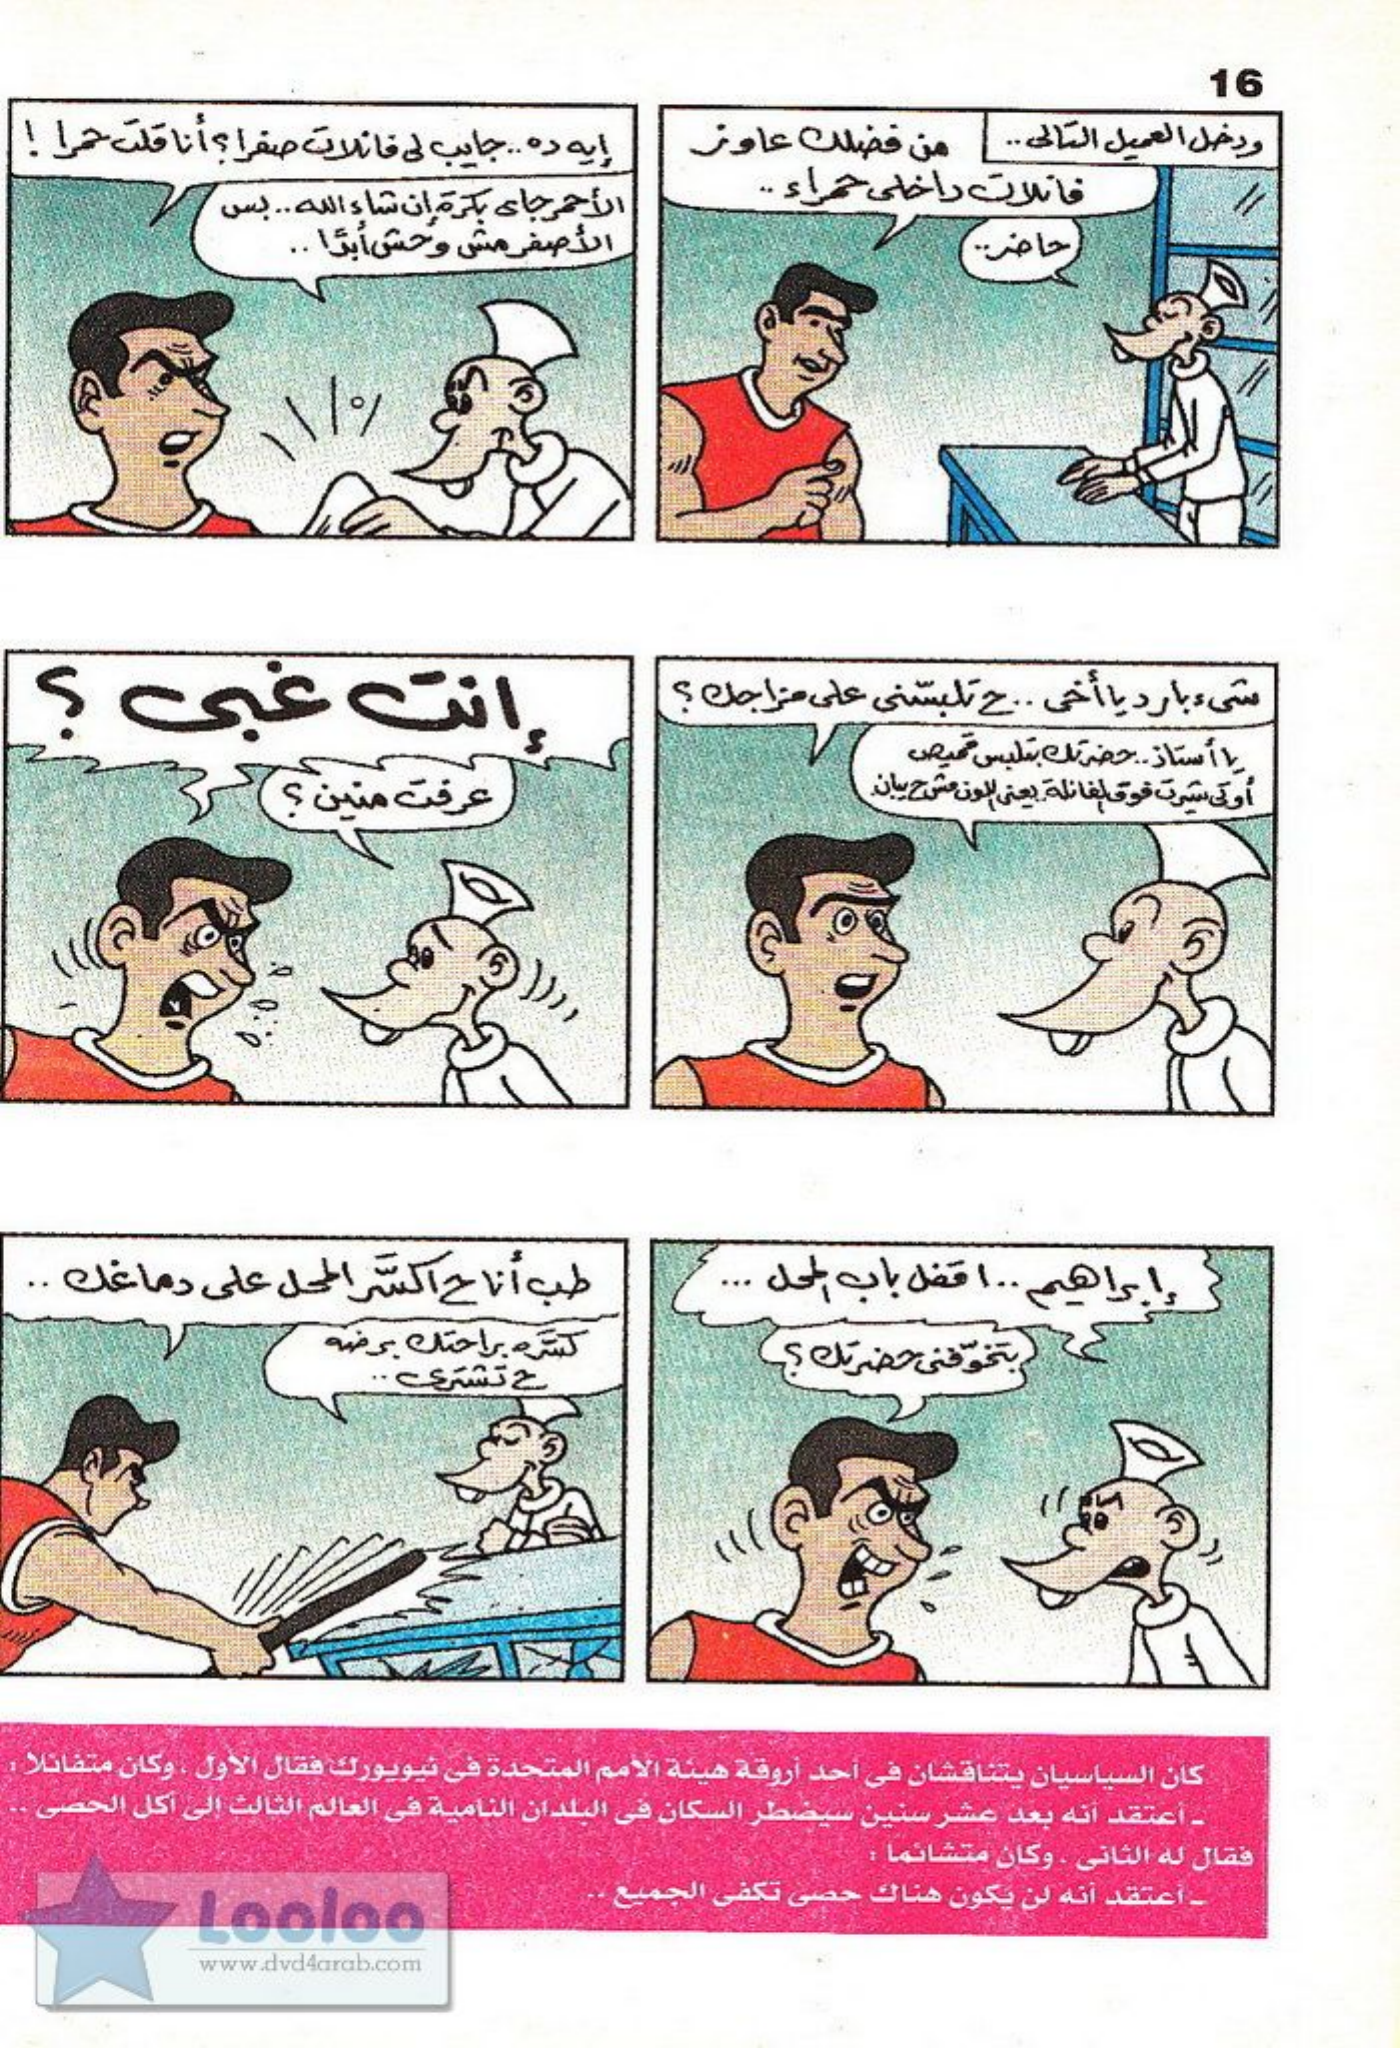 16
ودخل العميل التالى ..
من فضلك عاوز
فانلات داخلى حمراء ..
حاضر ..
إيه ده .. جايب لى فانلات صفرا ؟ أنا قلت حمرا !
الأحمر جاى بكرة إن شاء الله .. بس
الأصفر مش وحش أبدًا ..
شىء بارد يا أخى .. ح تلبسّنى على مزاجك ؟
يا أستاذ .. حضرتك بتلبس قميص
أو تى شيرت فوق الفانلة يعنى اللون مش ح يبان
إنت غبى ؟
عرفت منين ؟
إبراهيم .. اقفل باب المحل ...
بتخوّفنى حضرتك ؟
طب أنا ح اكسَّر المحل على دماغك ..
كسَّره براحتك برضه
ح تشترى ..
كان السياسيان يتناقشان فى أحد أروقة هيئة الأمم المتحدة فى نيويورك فقال الأول ، وكان متفائلا :
ـ أعتقد أنه بعد عشر سنين سيضطر السكان فى البلدان النامية فى العالم الثالث إلى أكل الحصى ..
فقال له الثانى ، وكان متشائما :
ـ أعتقد أنه لن يكون هناك حصى تكفى الجميع ..
Looloo
www.dvd4arab.com